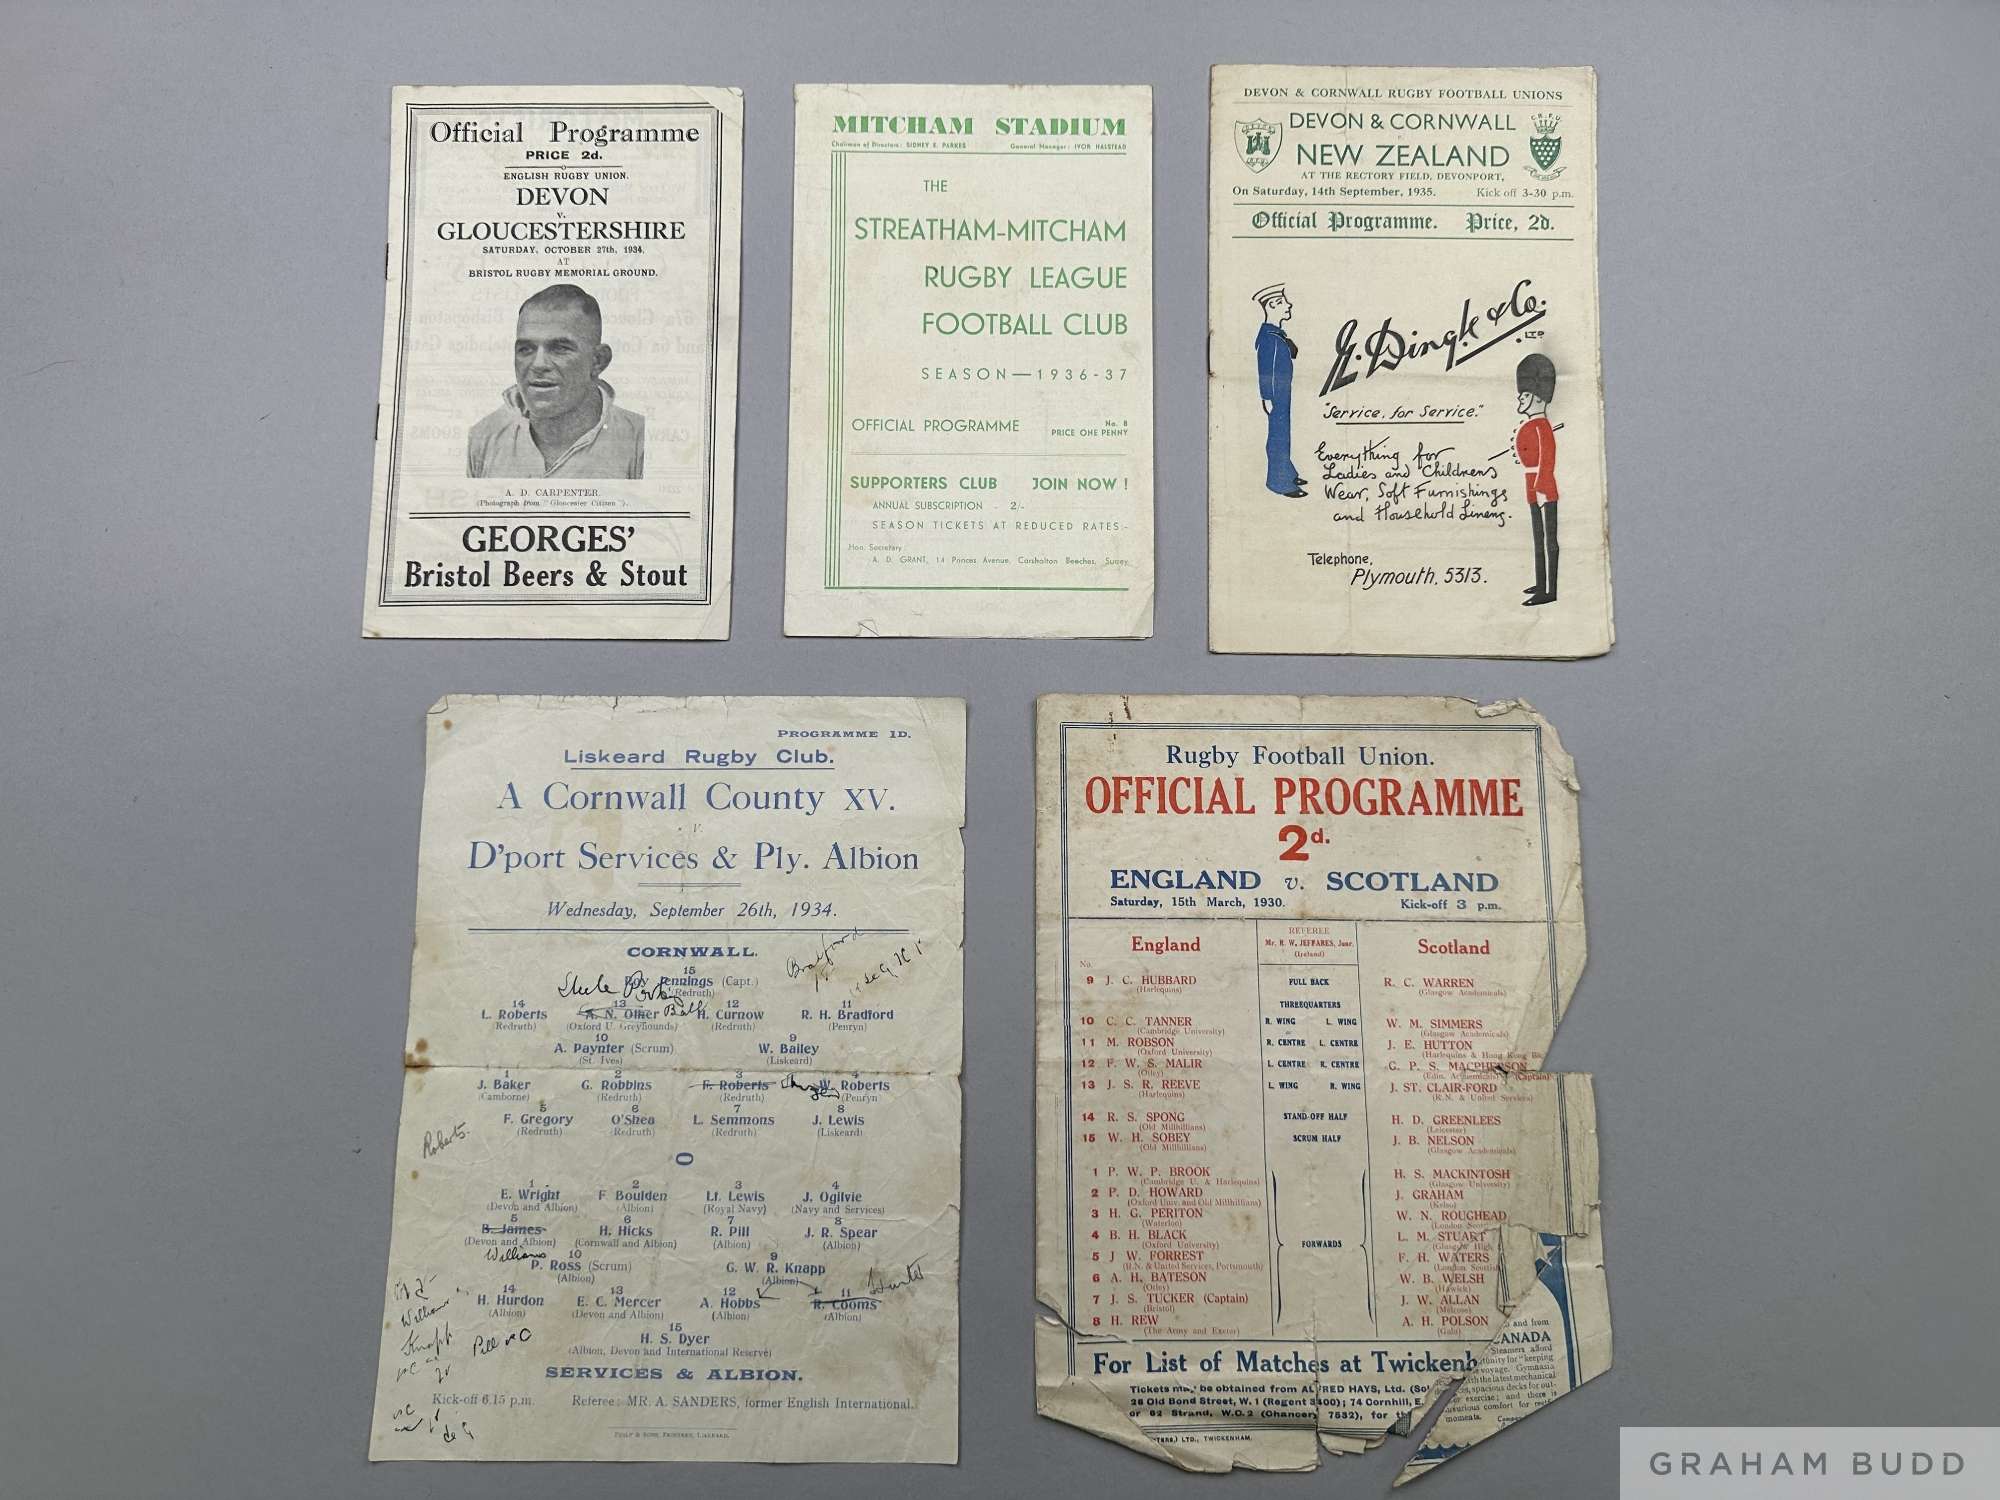 Official Programme
PRICE 2d.
ENGLISH RUGBY UNION.
DEVON
v.
GLOUCESTERSHIRE
SATURDAY, OCTOBER 27th, 1934.
AT
BRISTOL RUGBY MEMORIAL GROUND.
A. D. CARPENTER.
(Photograph from "Gloucester Citizen").
GEORGES'
Bristol Beers & Stout
MITCHAM STADIUM
Chairman of Directors: SIDNEY E. PARKES General Manager: IVOR HALSTEAD
THE
STREATHAM-MITCHAM
RUGBY LEAGUE
FOOTBALL CLUB
SEASON—1936-37
OFFICIAL PROGRAMME No. 8
PRICE ONE PENNY
SUPPORTERS CLUB JOIN NOW!
ANNUAL SUBSCRIPTION - 2/-
SEASON TICKETS AT REDUCED RATES:-
Hon. Secretary:
A. D. GRANT, 14 Princes Avenue, Carshalton Beeches, Surrey.
DEVON & CORNWALL RUGBY FOOTBALL UNIONS
C.R.F.U.
DEVON & CORNWALL
NEW ZEALAND
AT THE RECTORY FIELD, DEVONPORT,
On Saturday, 14th September, 1935. Kick off 3-30 p.m.
Official Programme. Price, 2d.
E. Dingle & Co.
LTD
"Service, for Service."
Everything for
Ladies and Childrens
Wear, Soft Furnishings
and Household Linens.
Telephone,
Plymouth, 5313.
PROGRAMME 1D.
Liskeard Rugby Club.
A Cornwall County XV.
v.
D'port Services & Ply. Albion
Wednesday, September 26th, 1934.
CORNWALL.
Bradford
15
Roy Jennings (Capt.)
(Redruth)
14 13 12 11
L. Roberts A. N. Other H. Curnow R. H. Bradford
(Redruth) (Oxford U. Greyhounds) (Redruth) (Penryn)
10 9
A. Paynter (Scrum) W. Bailey
(St. Ives) (Liskeard)
1 2 3 4
J. Baker G. Robbins F. Roberts W. Roberts
(Camborne) (Redruth) (Redruth) (Penryn)
5 6 7 8
F. Gregory O'Shea L. Semmons J. Lewis
(Redruth) (Redruth) (Redruth) (Liskeard)
Roberts.
O
1 2 3 4
E. Wright F. Boulden Lt. Lewis J. Ogilvie
(Devon and Albion) (Albion) (Royal Navy) (Navy and Services)
5 6 7 8
B. James H. Hicks R. Pill J. R. Spear
(Devon and Albion) (Cornwall and Albion) (Albion) (Albion)
Williams
10 9
P. Ross (Scrum) G. W. R. Knapp
(Albion) (Albion)
Hunter
14 13 12 11
H. Hurdon E. C. Mercer A. Hobbs R. Cooms
(Albion) (Devon and Albion) (Albion) (Albion)
Williams
Knapp
Pill
15
H. S. Dyer
(Albion, Devon and International Reserve)
SERVICES & ALBION.
Kick-off 6.15 p.m. Referee: MR. A. SANDERS, former English International.
PHILP & SONS, PRINTERS, LISKEARD.
Rugby Football Union.
OFFICIAL PROGRAMME
2d.
ENGLAND v. SCOTLAND
Saturday, 15th March, 1930. Kick-off 3 p.m.
England REFEREE Scotland
Mr. R. W. JEFFARES, Junr.
(Ireland)
No.
9 J. C. HUBBARD FULL BACK R. C. WARREN
(Harlequins) (Glasgow Academicals)
THREEQUARTERS
10 C. C. TANNER R. WING L. WING W. M. SIMMERS
(Cambridge University) (Glasgow Academicals)
11 M. ROBSON R. CENTRE L. CENTRE J. E. HUTTON
(Oxford University) (Harlequins & Hong Kong
12 F. W. S. MALIR L. CENTRE R. CENTRE G. P. S. MACPHERSON
(Otley) (Edin. Academicals) (Captain)
13 J. S. R. REEVE L. WING R. WING J. ST. CLAIR-FORD
(Harlequins) (R.N. & United Services)
14 R. S. SPONG STAND-OFF HALF H. D. GREENLEES
(Old Millhillians) (Leicester)
15 W. H. SOBEY SCRUM HALF J. B. NELSON
(Old Millhillians) (Glasgow Academicals)
1 P. W. P. BROOK H. S. MACKINTOSH
(Cambridge U. & Harlequins) (Glasgow University)
2 P. D. HOWARD J. GRAHAM
(Oxford Univ. and Old Millhillians) (Kelso)
3 H. G. PERITON W. N. ROUGHEAD
(Waterloo) (London
4 B. H. BLACK L. M. STUART
(Oxford University) (Glasgow High
5 J. W. FORREST FORWARDS F. H. WATERS
(R.N. & United Services, Portsmouth) (London Scottish)
6 A. H. BATESON W. B. WELSH
(Otley) (Hawick)
7 J. S. TUCKER (Captain) J. W. ALLAN
(Bristol) (Melrose)
8 H. REW A. H. POLSON
(The Army and Exeter) (Gala)
For List of Matches at Twickenh
Tickets may be obtained from ALFRED HAYS, Ltd.
26 Old Bond Street, W.1 (Regent 3400); 74 Cornhill, E.
or 62 Strand, W.C.2 (Chancery 7532), for th
LTD., TWICKENHAM.
and from
CANADA
Steamers afford
tunity for "keeping
voyage. Gymnasia
the latest mechanical
spacious decks for out-
exercise; and there is
luxurious comfort for
moments.
GRAHAM BUDD